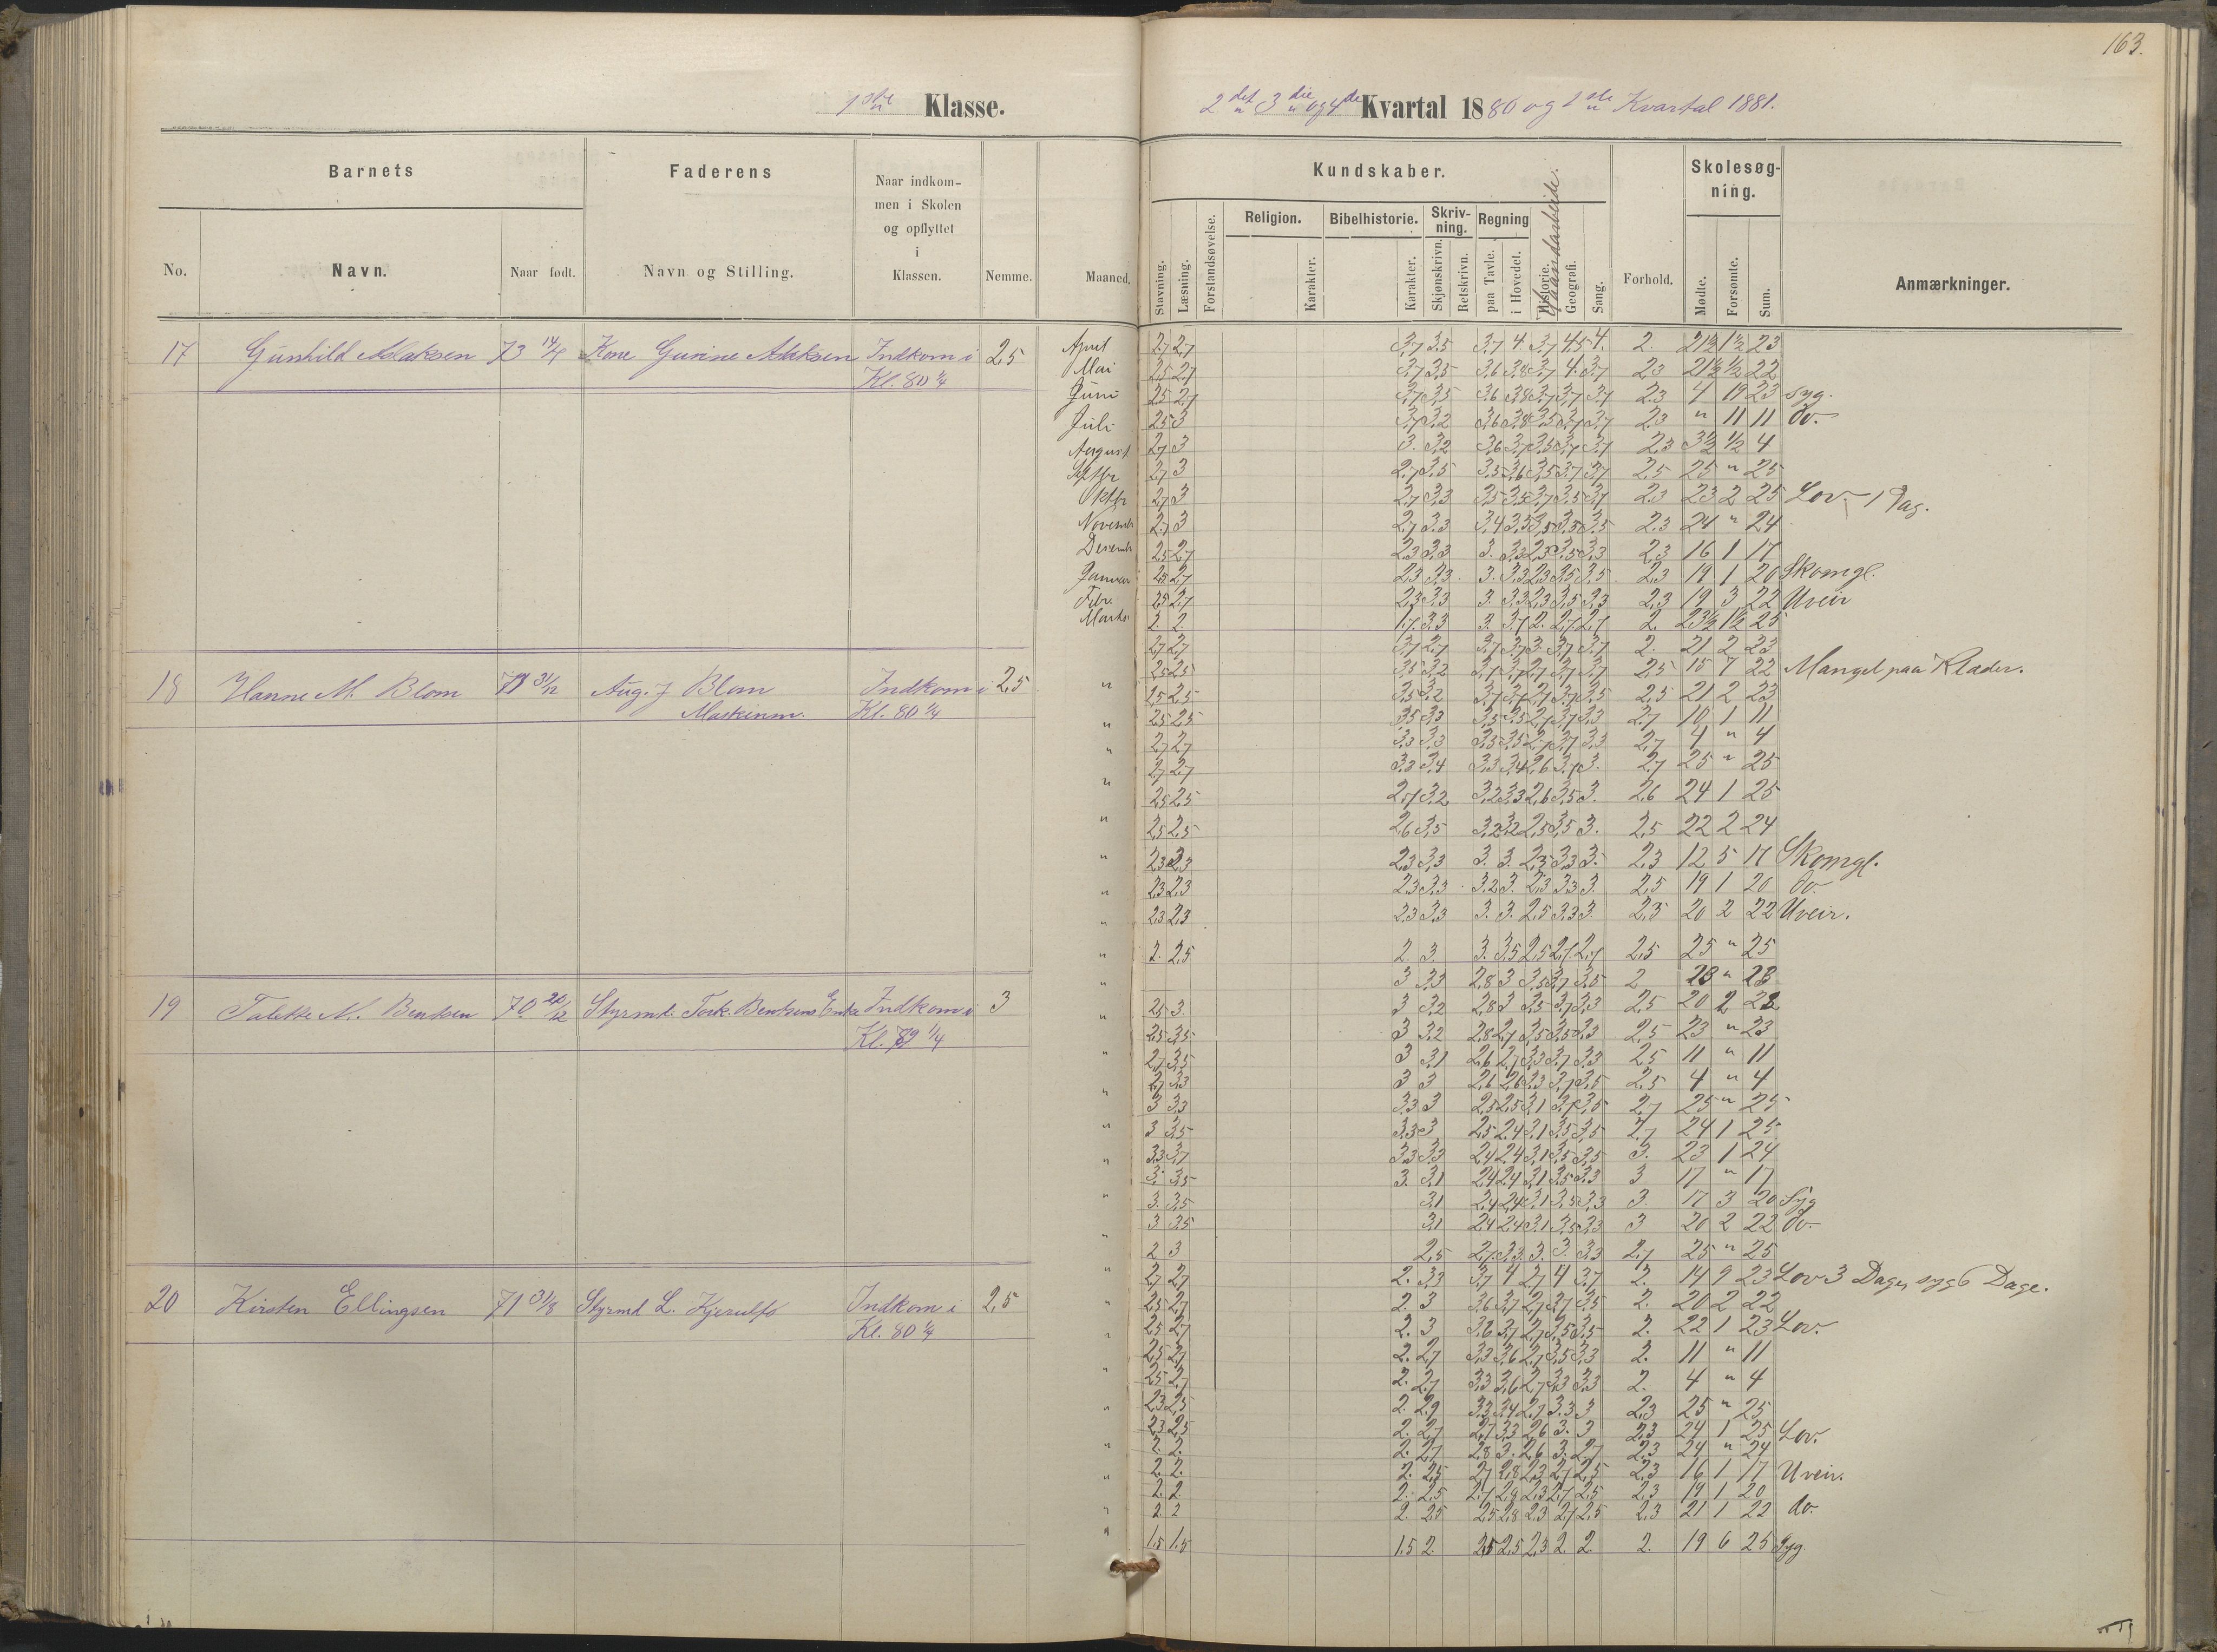 163.
1ste Klasse.
2det 3die og 4de Kvartal 1880 og 1ste Kvartal 1881.
Barnets
Faderens
Naar indkommen i Skolen og opflyttet i Klassen.
Nemme.
Maaned.
No.
Navn.
Naar født.
Navn og Stilling.
Kundskaber.
Stavning.
Læsning.
Forstandsøvelse.
Religion.
Karakter.
Bibelhistorie.
Karakter.
Skrivning.
Skjønskrivn.
Retskrivn.
Regning
paa Tavle.
i Hovedet.
Historie.
Haandarbeide.
Geografi.
Sang.
Forhold.
Skolesøgning.
Mødte.
Forsømte.
Sum.
Anmærkninger.
17 Gunhild Aslaksen 73 14/4 Kone Gurine Aslaksen Indkom i 2,5
Kl. 80 1/4
April 2,7 2,7 3,7 3,5 3,7 4. 3,7 4,5 4. 2. 21 1/2 1 1/2 23
Mai 2,5 2,7 3,7 3,5 3,6 3,8 3,7 4. 3,7 2,3 21 1/2 1/2 22
Juni 2,5 2,7 3,7 3,5 3,6 3,8 3,7 3,7 3,7 2,3 4 19 23 syg.
Juli 2,5 3 3,7 3,2 3,6 3,8 3,5 3,7 3,7 2,3 " 11 11 do.
August 2,7 3 3. 3,2 3,6 3,7 3,5 3,7 3,7 2,3 3 1/2 1/2 4
Septbr 2,7 3 2,7 3,5 3,5 3,6 3,5 3,7 3,7 2,5 25 " 25
Oktbr 2,7 3 2,7 3,3 3,5 3,5 3,7 3,5 3,7 2,3 23 2 25 Lov 1 Dag.
Novembr 2,7 3 2,7 3,3 3,4 3,5 3,5 3,5 3,5 2,3 24 " 24
Desembr 2,5 2,7 2,3 3,3 3. 3,3 2,3 3,5 3,3 2,3 16 1 17
Januar 2,5 2,7 2,3 3,3 3. 3,3 2,3 3,5 3,5 2,3 19 1 20 Skomgl.
Febr. 2,5 2,7 2,3 3,3 3. 3,3 2,3 3,5 3,3 2,3 19 3 22 Uveir
Marts 2 2. 1,7 3,3 3. 3,7 2. 2,7 2,7 2. 23 1/2 1 1/2 25
2,7 2,7 3,7 2,7 3,7 3,7 3. 3,7 3,7 2. 21 2 23
18 Hanne M. Blom 31/12 Aug. J Blom Indkom i 2,5
Maskinm. Kl. 80 1/4
2,5 2,5 3,5 3,2 3,7 3,7 2,7 3,7 3,7 2,5 15 7 22 Mangel paa Klæder.
2,5 2,5 3,5 3,2 3,7 3,7 2,7 3,7 3,5 2,5 21 2 23
2,5 2,5 3,5 3,3 3,5 3,5 2,7 3,7 3,3 2,7 10 1 11
2,7 2,7 3,3 3,3 3,3 3,5 2,7 3,7 3,3 2,7 4 " 4
2,7 2,7 3,3 3,4 3,3 3,4 2,6 3,7 3. 2,7 25 " 25
2,5 2,5 2,7 3,2 3,2 3,3 2,6 3,5 3. 2,6 24 1 25
2,5 2,5 2,6 3,5 3,2 3,2 2,5 3,5 3. 2,5 22 2 24
2,3 2,3 2,3 3,3 3. 3. 2,3 3,3 3. 2,3 12 5 17 Skomgl.
2,3 2,3 2,3 3,3 3,2 3. 2,3 3,3 3. 2,5 19 1 20 do.
2,3 2,3 2,3 3,3 3. 3. 2,5 3,3 3. 2,5 20 2 22 Uveir.
2. 2,5 2. 3. 3. 3,5 2,5 2,7 2,7 2,5 25 " 25
3 3,3 2,8 3 3,5 3,7 3,5 2 23 " 23
19 Talette N. Bentsen 70 20/12 Styrmd. Tork. Bentsens Enke Indkom i 3
Kl. 79 1/4
2,5 3. 3 3,2 2,8 3 3,5 3,7 3,3 2,5 20 2 22
2,5 3,5 3 3,2 2,8 2,7 3,5 3,5 3,3 2,5 23 " 23
2,7 3,5 3 3,1 2,6 2,7 3,3 3,7 3,3 2,5 11 " 11
2,7 3,3 3 3 2,6 2,6 3,3 3,7 3,5 2,5 4 " 4
3 3,3 3,3 3 2,5 2,5 3,1 3,7 3,5 2,7 25 " 25
3 3,5 3,3 3 2,5 2,4 3,1 3,5 3,5 2,7 24 1 25
3,3 3,7 3,3 3,3 2,4 2,4 3,1 3,5 3,5 3. 23 1 24
3. 3,5 3. 3,1 2,4 2,4 3,1 3,5 3,3 3 17 " 17
3. 3,5 3,1 2,4 2,4 3,1 3,5 3,3 3. 17 3 20 Syg
3 3,5 3,1 2,4 2,4 3,1 3,5 3,3 3 20 2 22 do.
2 3 2,5 2,7 3,3 3. 3. 3,3 2,7 25 " 25
2,7 2,7 2. 3,3 3,7 4 2,7 4 3,7 2. 14 9 23 Lov 3 Dage, syg 6 Dage.
20 Kirsten Ellingsen 71 31/8 Styrmd L. Kjerulfs Indkom i 2,5
Kl. 80 1/4
2,5 2,7 2. 3 3,6 3,7 2,7 3,7 3,5 2. 20 2 22
2,5 2,7 2. 3 3,6 3,7 2,7 3,5 3,5 2. 22 1 23 Lov.
2,5 2,7 2. 2,7 3,3 3,6 2,7 3,5 3,3 2. 11 " 11
2,5 2,7 2. 2,7 3,3 3,6 2,7 3,3 3,3 2. 4 " 4
2,3 2,5 2. 2,9 3,3 3,4 2,7 3,3 3 2,3 25 " 25
2,3 2,5 2. 2,7 2,7 3,3 2,6 3. 3 2,3 24 1 25 Lov.
2. 2. 2. 2,7 2,8 3. 2,6 3. 2,7 2,3 24 " 24
2. 2. 2. 2,5 2,7 2,8 2,3 2,7 2,5 2,3 16 1 17 Uveir.
2. 2. 2. 2,5 2,7 2,8 2,3 2,7 2,5 2,3 19 1 20
2 2 2. 2,5 2,5 2,8 2,3 2,7 2,5 2,3 21 1 22 do.
1,5 1,5 1,5 2. 2,5 2,5 2,3 2. 2. 2. 19 6 25 Syg.